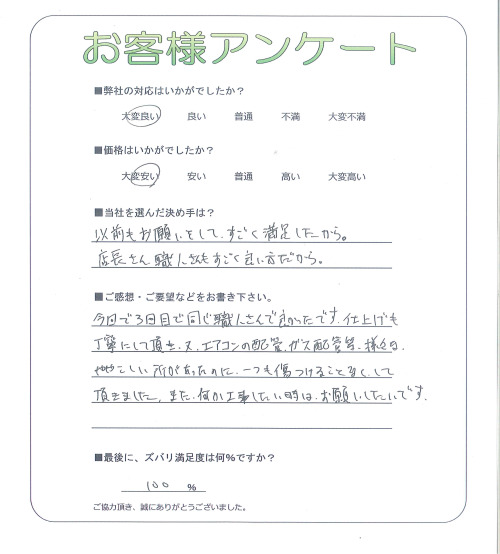 お客様アンケート
■弊社の対応はいかがでしたか？
大変良い 良い 普通 不満 大変不満
■価格はいかがでしたか？
大変安い 安い 普通 高い 大変高い
■当社を選んだ決め手は？
以前もお願いをして、すごく満足したから。
店長さん、職人さんもすごく良い方だから。
■ご感想・ご要望などをお書き下さい。
今回で3回目で同じ職人さんで良かったです。仕上げも
丁寧にして頂き、又、エアコンの配管、ガス配管等、様々な、
ややこしい所があったのに、一つも傷つけることなく、して
頂きました。また、何か工事したい時は、お願いしたいです。
■最後に、ズバリ満足度は何%ですか？
100 %
ご協力頂き、誠にありがとうございました。